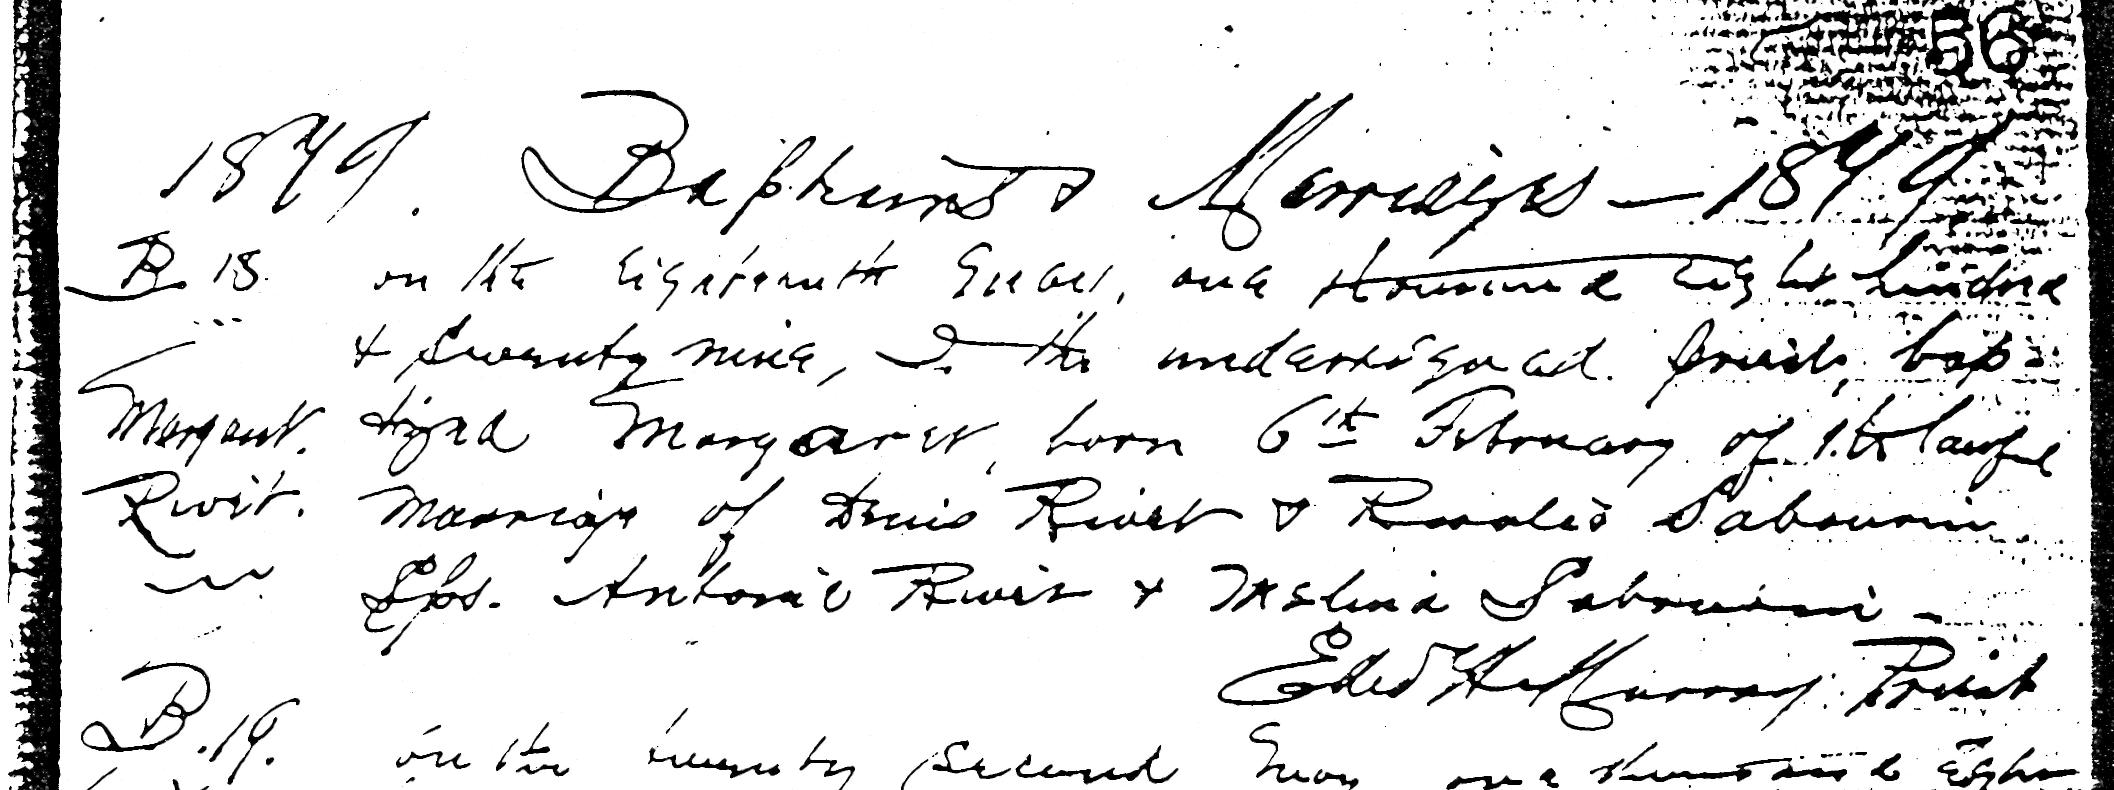 56
1879. Baptisms & Marriages — 1879
B. 18 on the Eighteenth May, one thousand eight hundred
& seventy nine, I the undersigned priest, bap=
Margaret. tized Margaret, born 6th February of the lawful
Rivet. Marriage of Denis Rivet & Rosalie Sabourin
Sps. Antoine Rivet & Melina Sabourin -
Edwd H Murray. Priest
B. 19. on the twenty second May one thousand eight